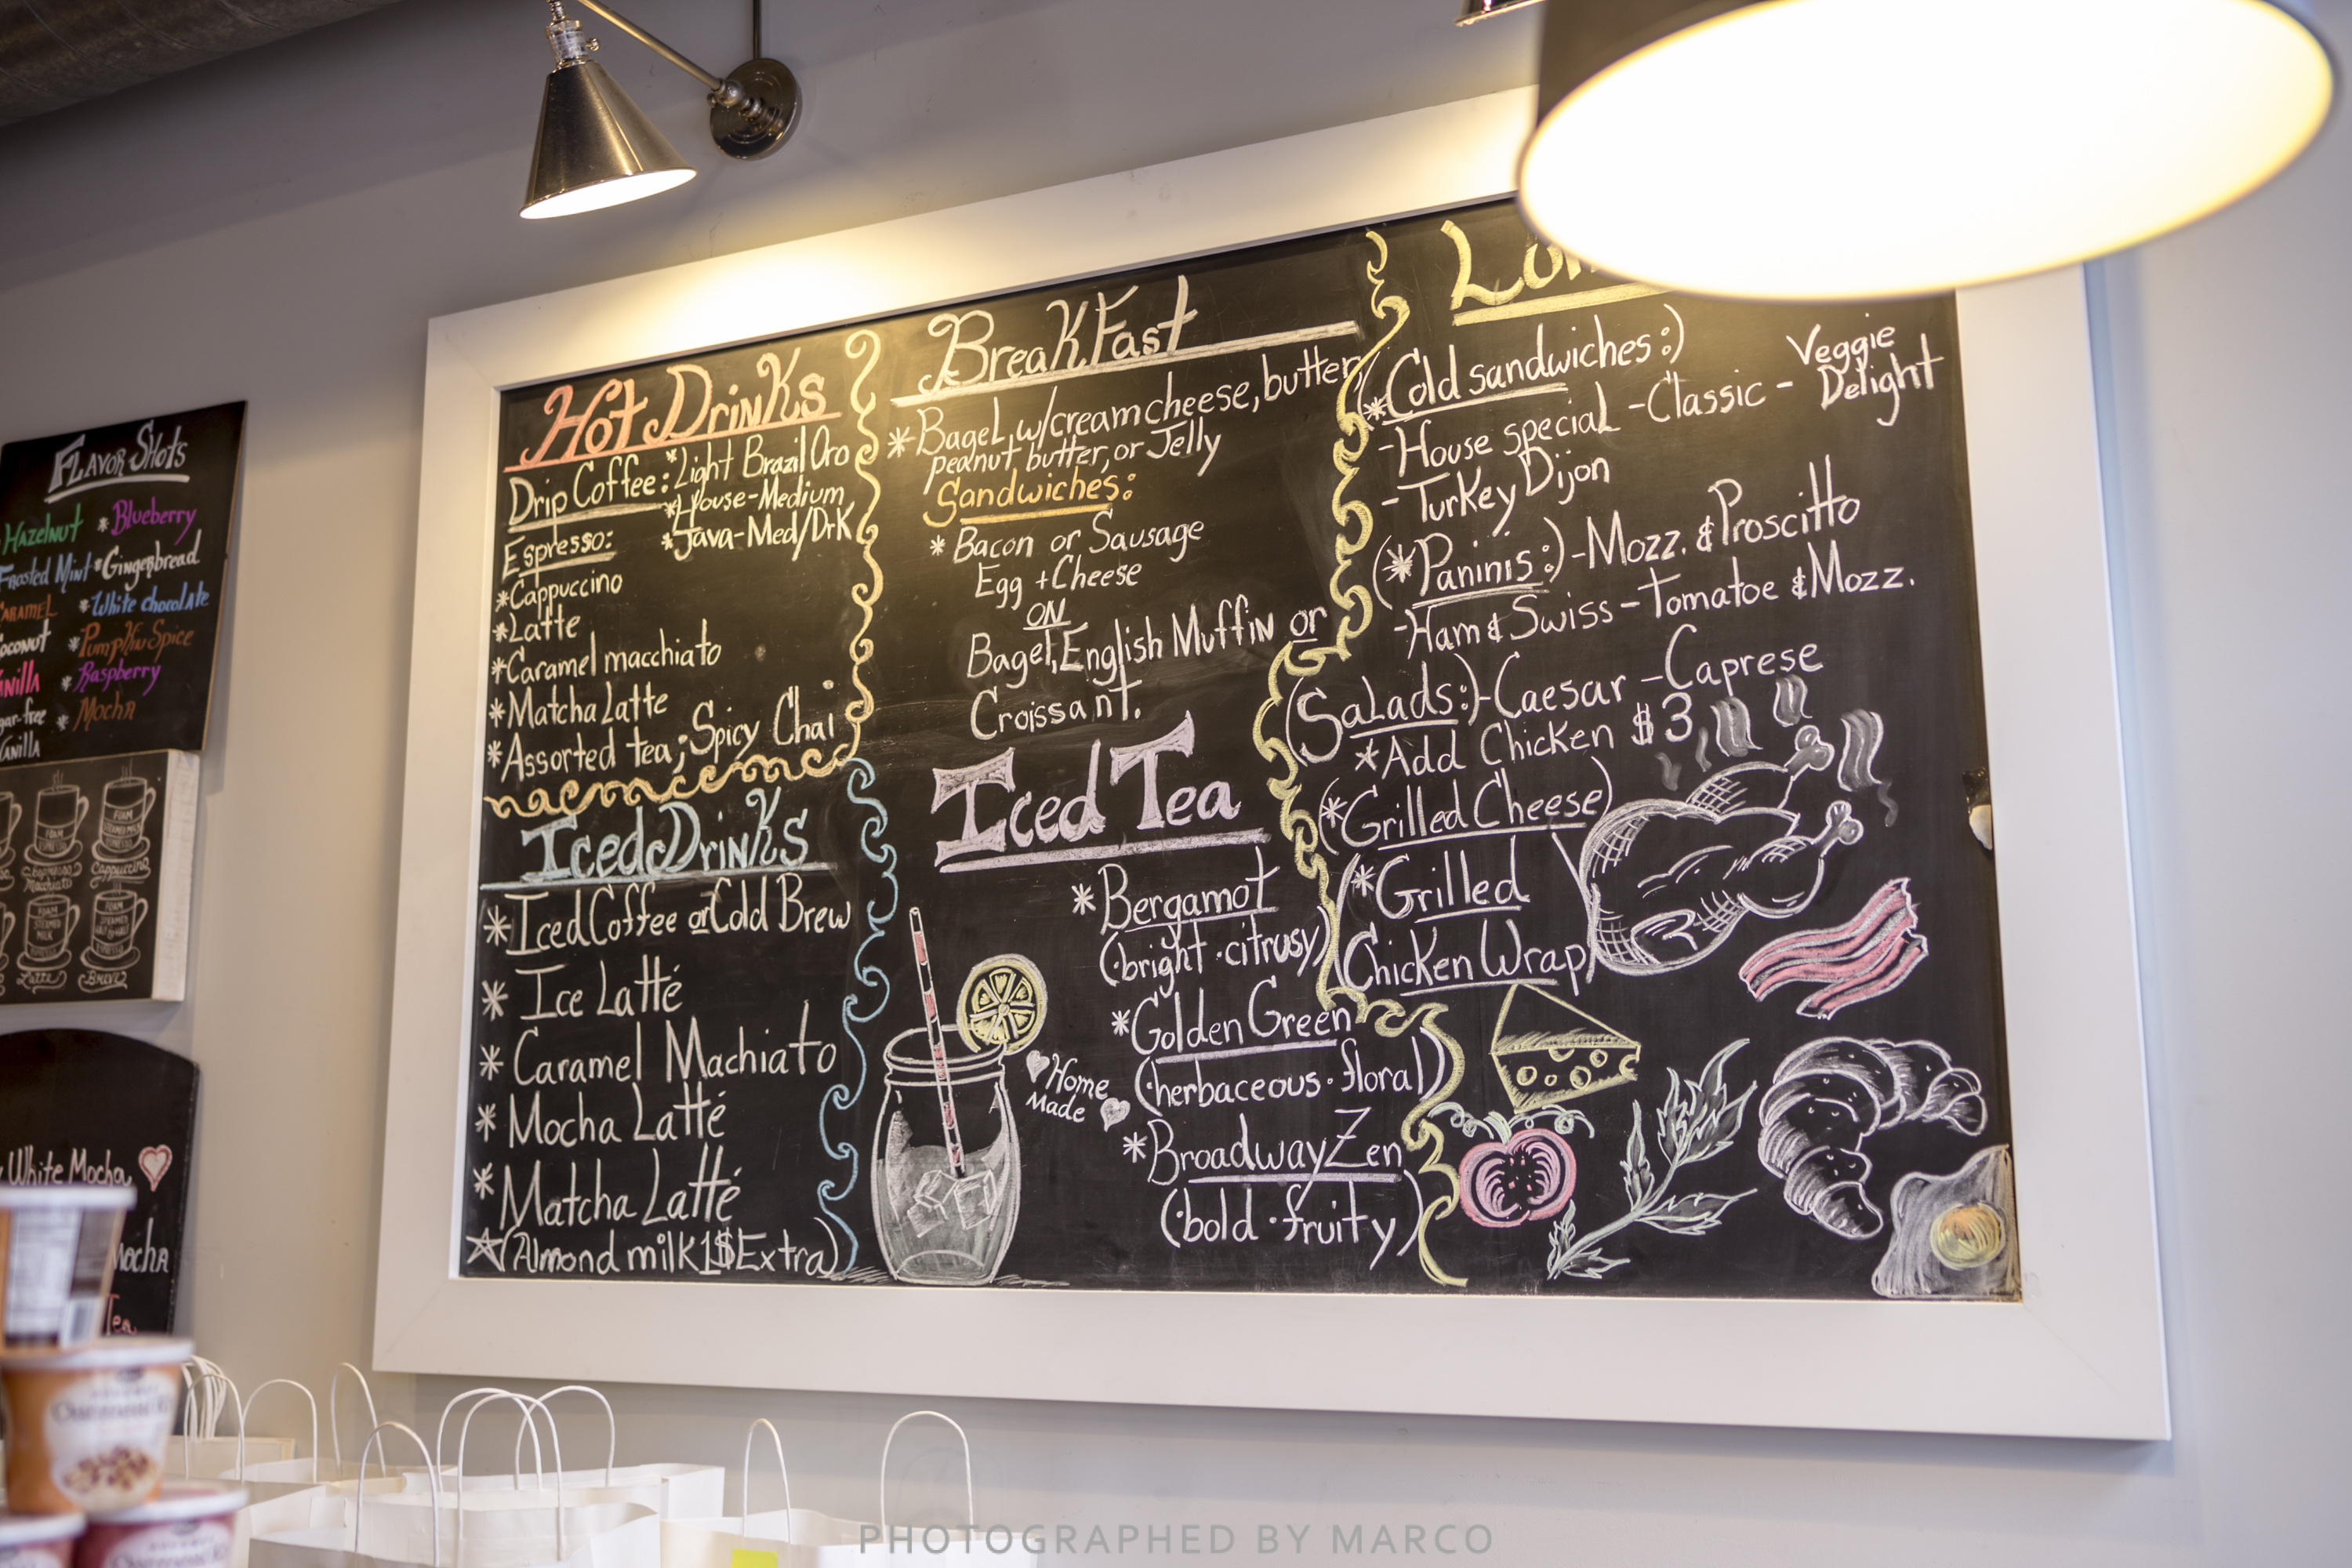 FLAVOR SHOTS
HAZELNUT *Blueberry
Frosted Mint *Gingerbread
*White chocolate
*Pumpkin Spice
*Raspberry
*Mocha
FOAM
FOAM
Cappuccino
FOAM
STEAMED
MILK
Latte
Breve
White Mocha
Mocha
Tea
Hot Drinks
Drip Coffee: *Light Brazil Oro
*House-Medium
*Java-Med/Drk
Espresso:
*Cappuccino
*Latte
*Caramel macchiato
*Matcha Latte
*Assorted tea; Spicy Chai
Iced Drinks
*Iced Coffee or Cold Brew
* Ice Latté
* Caramel Machiato
* Mocha Latté
* Matcha Latté
(Almond milk 1$ Extra)
BreakFast
*Bagel w/cream cheese, butter,
peanut butter, or Jelly
Sandwiches:
* Bacon or Sausage
Egg + Cheese
ON
Bagel, English Muffin or
Croissant.
Iced Tea
* Bergamot
(·bright ·citrusy)
*Golden Green
(·herbaceous · floral)
*Broadway Zen
(·bold ·fruity)
Home
Made
*Cold sandwiches:)
-House special -Classic - Veggie
Delight
-Turkey Dijon
(*Paninis:)-Mozz. & Proscitto
-Ham & Swiss -Tomatoe & Mozz.
(Salads:)-Caesar -Caprese
*Add Chicken $3
(*Grilled Cheese)
(*Grilled
Chicken Wrap)
PHOTOGRAPHED BY MARCO